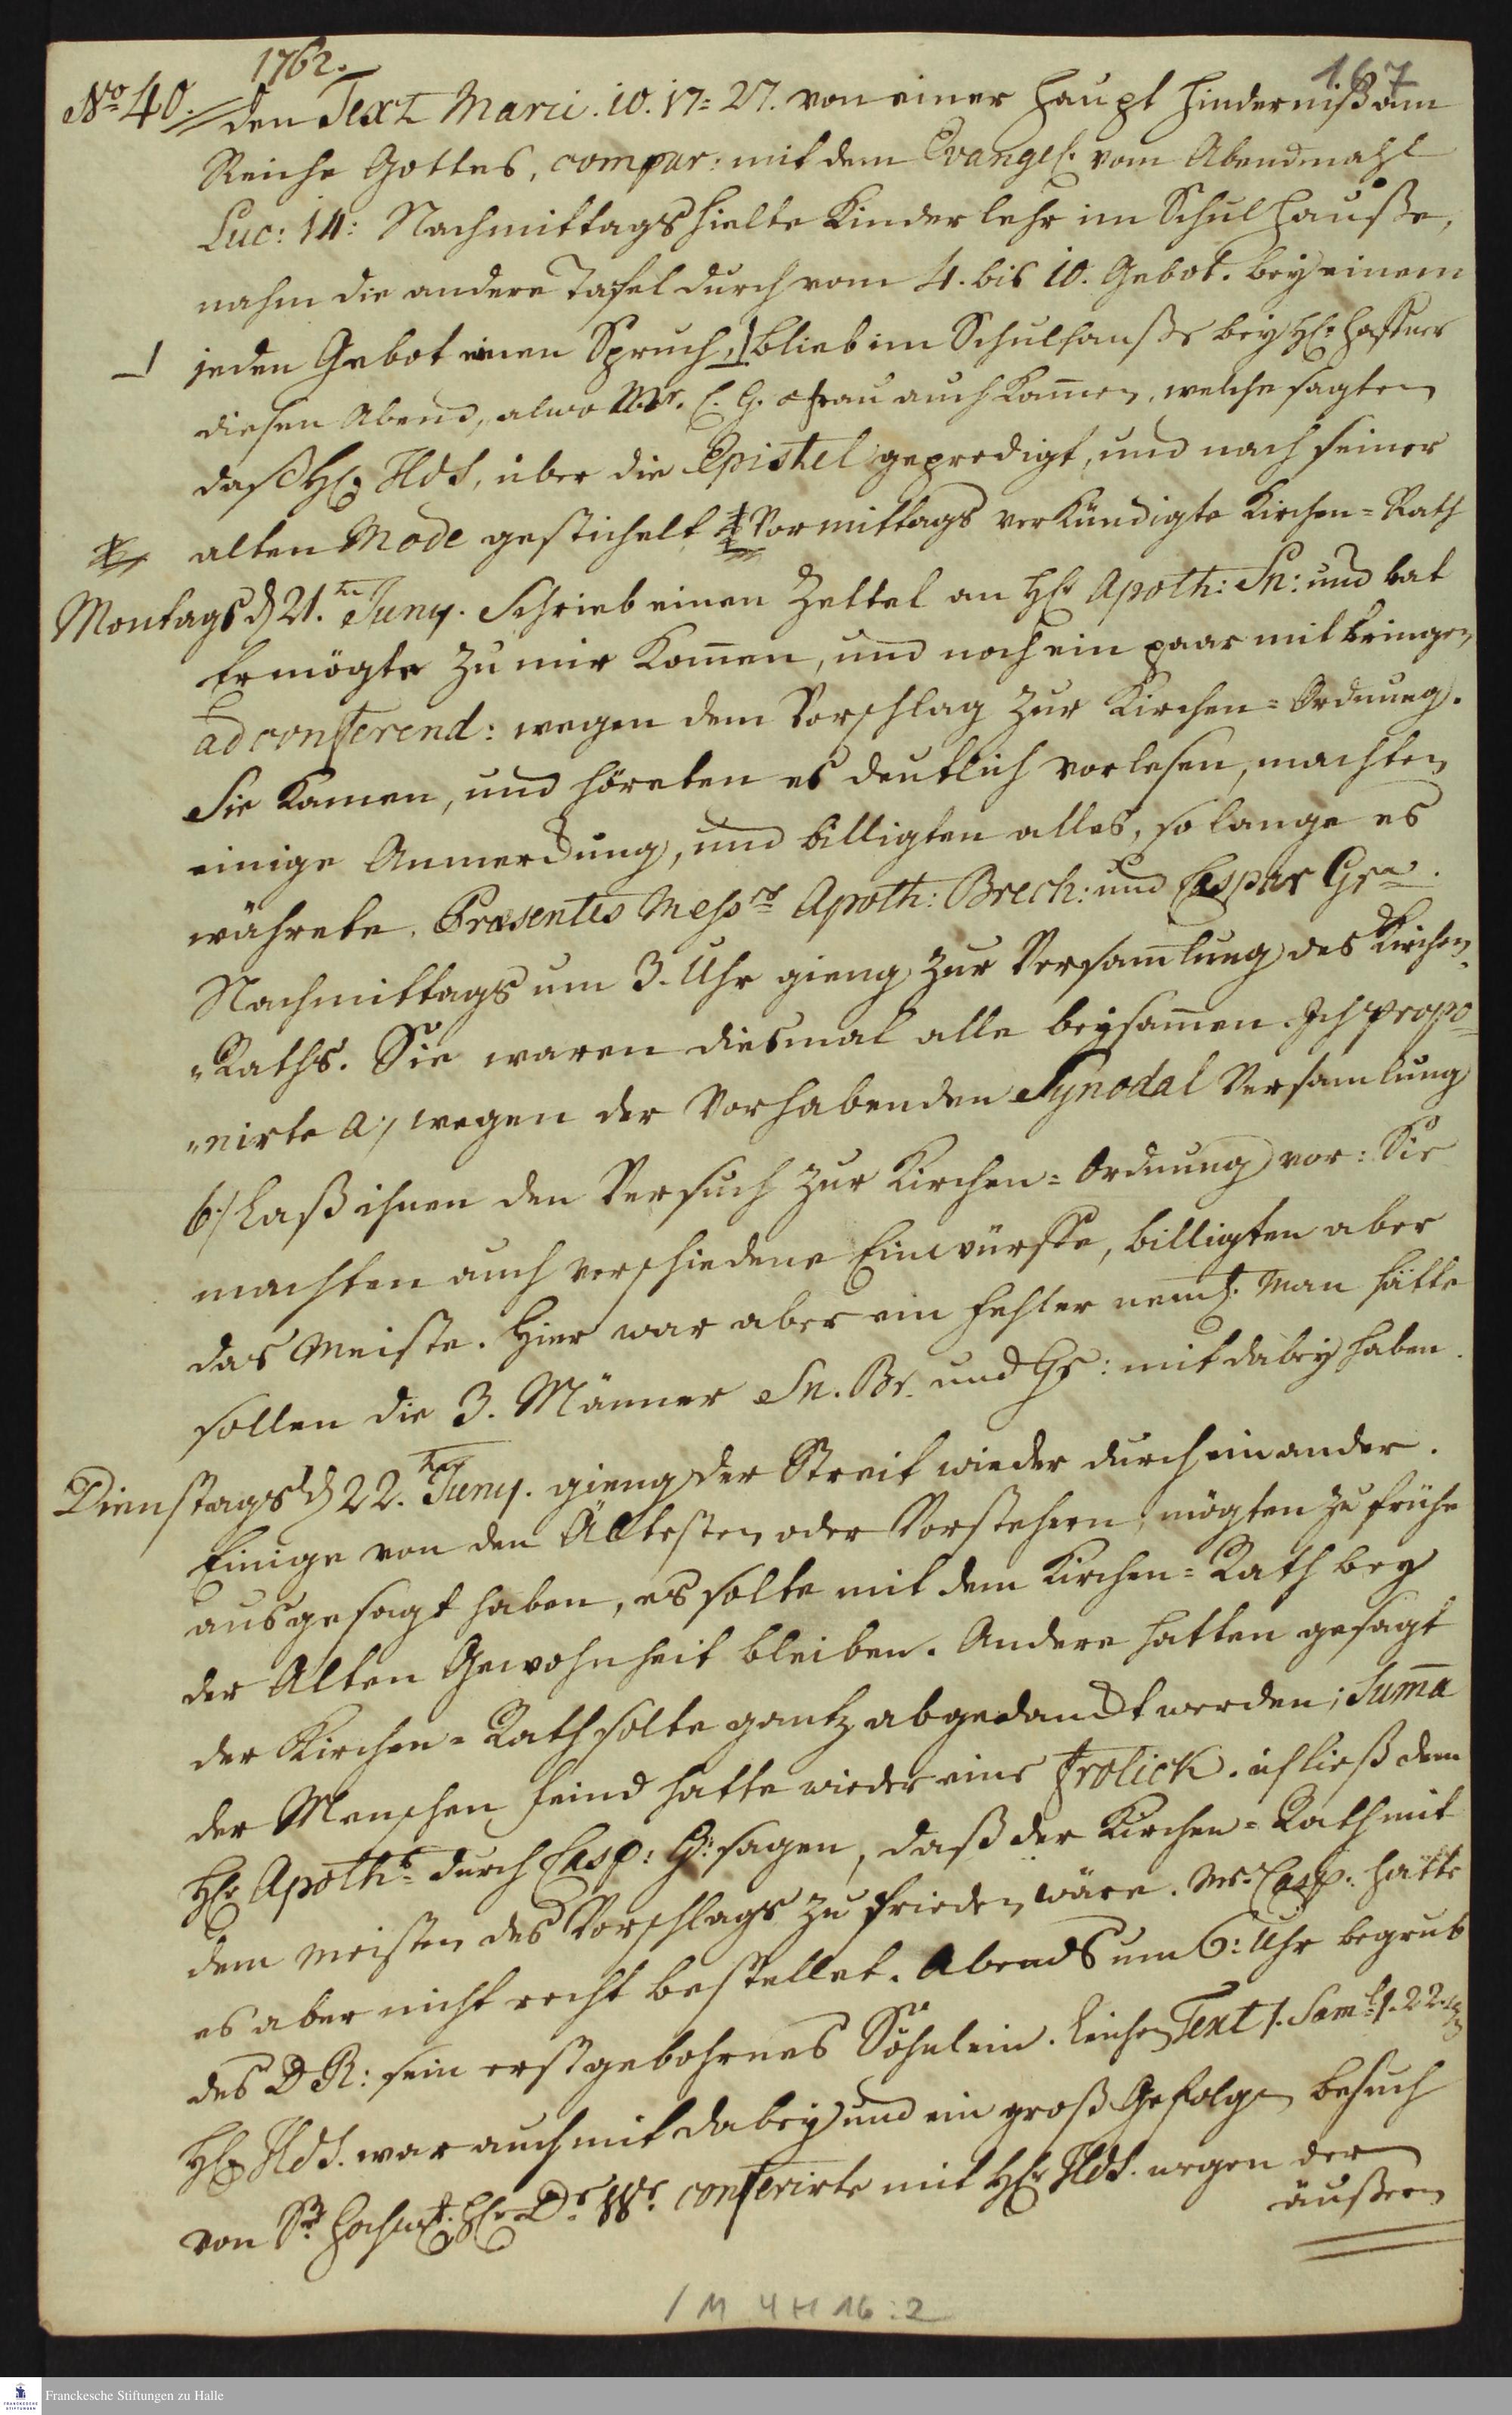 1762.
167
No 40. den Text Marci. 10. 17=27. von einer Haupt Hinderniß am
Reiche Gottes, compar: mit dem Evangel. vom Abendmahl
Luc: 14: Nachmittags hielte Kinderlehr im Schulhauße,
nahm die andere Tafel durch vom 4. bis 10. Gebot. bey einem
jeden Gebot einen Spruch, blieb im Schulhauße bey H. Haffner
diesen Abend, alwo Mr. C. G. Frau auch kamen, welche sagten
daß H. Hds, über die Epistel gepredigt, und nach seiner
alten Mode gestichelt ‡ Vormittags verkündigte Kirchen=Rath
Montags d 21.ten Juny. Schrieb einen Zettel an H. Apoth: Sn: und bat
Er mögte zu mir komen, und noch ein paar mit bringen,
ad conferend: wegen dem Vorschlag zur Kirchen=Ordnung.
Sie kamen, und höreten es deutlich vorlesen, machten
einige Anmerckung, und billigten alles, so lange es
währete. Præsentes Messrs Apoth: Brech: und Caspar Gr.
Nachmittags um 3. Uhr gieng zur Versamlung des Kirchen
"Raths. Sie waren diesmal alle beysamen. Ich propo=
"nirte a:/ wegen der Vorhabenden Synodal Versamlung
b:/ Laß ihnen den Versuch zur Kirchen=Ordnung vor: Sie
machten auch verschiedene Einwürffe, billigten aber
das Meiste. Hier war aber ein Fehler neml. Man hätte
sollen die 3. Männer Sn. Br. und Gr: mit dabey haben.
Dienstags d 22.ten Juny. gieng der Streit wieder durch einander.
Einige von den Ältesten oder Vorstehern, mögten zu frühe
ausgesagt haben, es solte mit dem Kirchen=Rath bey
der Alten Gewohnheit bleiben. Andere hatten gesagt
der Kirchen=Rath solte gantz abgedanckt werden; Suma
der Menschen Feind hatte wieder eine Frolick. ich ließ dem
H. Apothr durch Casp: G: sagen, daß der Kirchen=Rath mit
dem meisten des Vorschlags zu frieden wäre. Mr. Casp: hatte
es aber nicht recht bestellet. Abends um 6: Uhr begrub
des D R: sein erstgebohrnes Söhnlein. Leichen Text 1. Sam: 1. 22
H. Hds. war auch mit dabey und ein groß Gefolge, besuch
von Sr Hochw. H. Dr. Wr. conferirte mit H. Hds. wegen der
äußern
1 M 4 H 16:2
Franckesche Stiftungen zu Halle